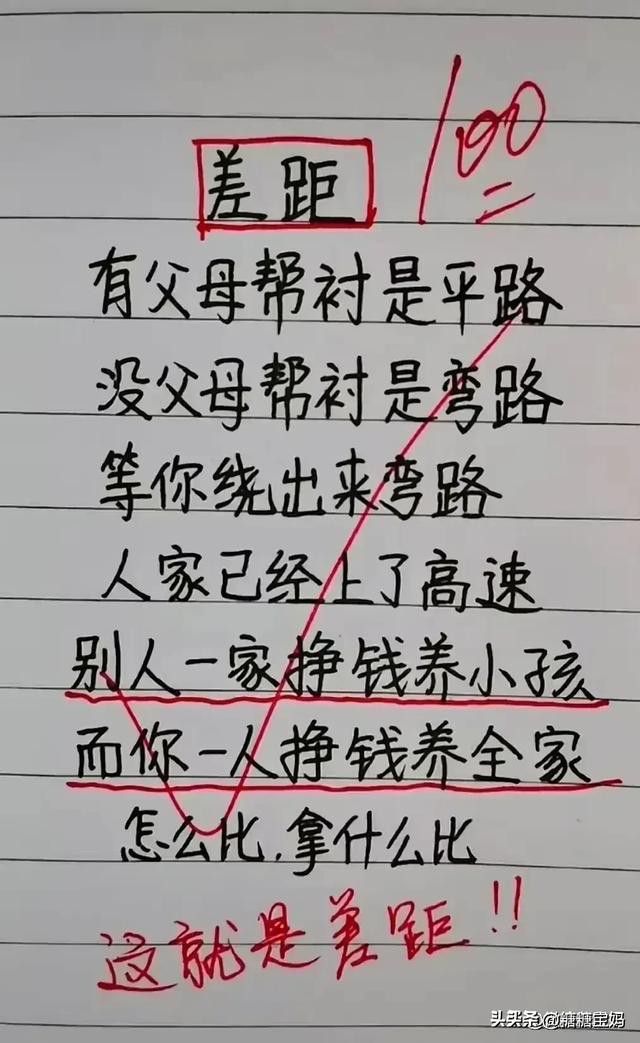 100
差距
有父母帮衬是平路
没父母帮衬是弯路
等你绕出来弯路
人家已经上了高速
别人一家挣钱养小孩
而你一人挣钱养全家
怎么比.拿什么比
这就是差距!!
头条@糖糖宝妈